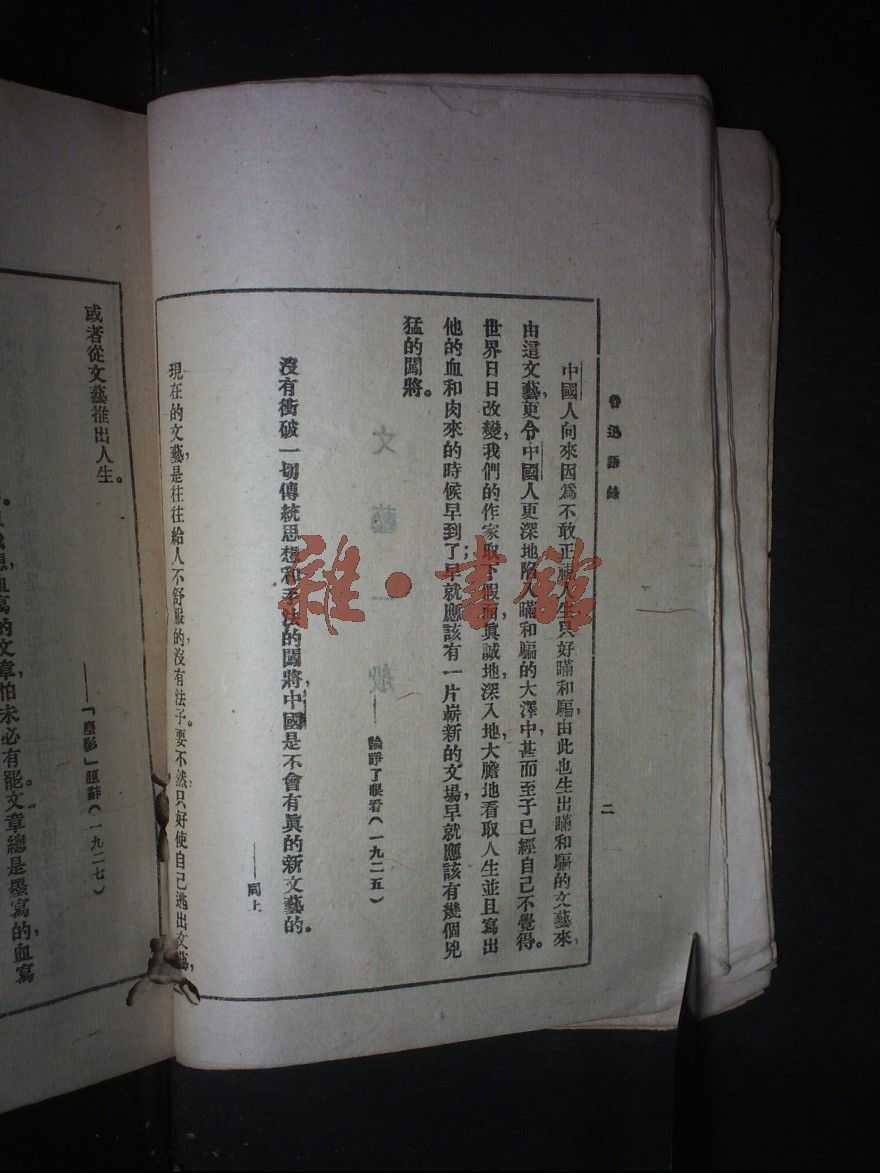 魯迅語錄
二
中國人向來因爲不敢正視人生,只好瞞和騙,由此也生出瞞和騙的文藝來,
由這文藝,更令中國人更深地陷入瞞和騙的大澤中,甚而至于已經自己不覺得。
世界日日改變,我們的作家取下假面,眞誠地,深入地,大膽地看取人生並且寫出
他的血和肉來的時候早到了;早就應該有一片嶄新的文場,早就應該有幾個兇
猛的闖將。
——論睜了眼看(一九二五)
沒有衝破一切傳統思想和手法的闖將,中國是不會有眞的新文藝的。
——同上
現在的文藝,是往往給人不舒服的,沒有法子。要不然,只好使自己逃出文藝,
或者從文藝推出人生。
——「塵影」題辭(一九二七)
血寫的文章,怕未必有罷。文章總是墨寫的,血寫
文藝一般
雜·書館